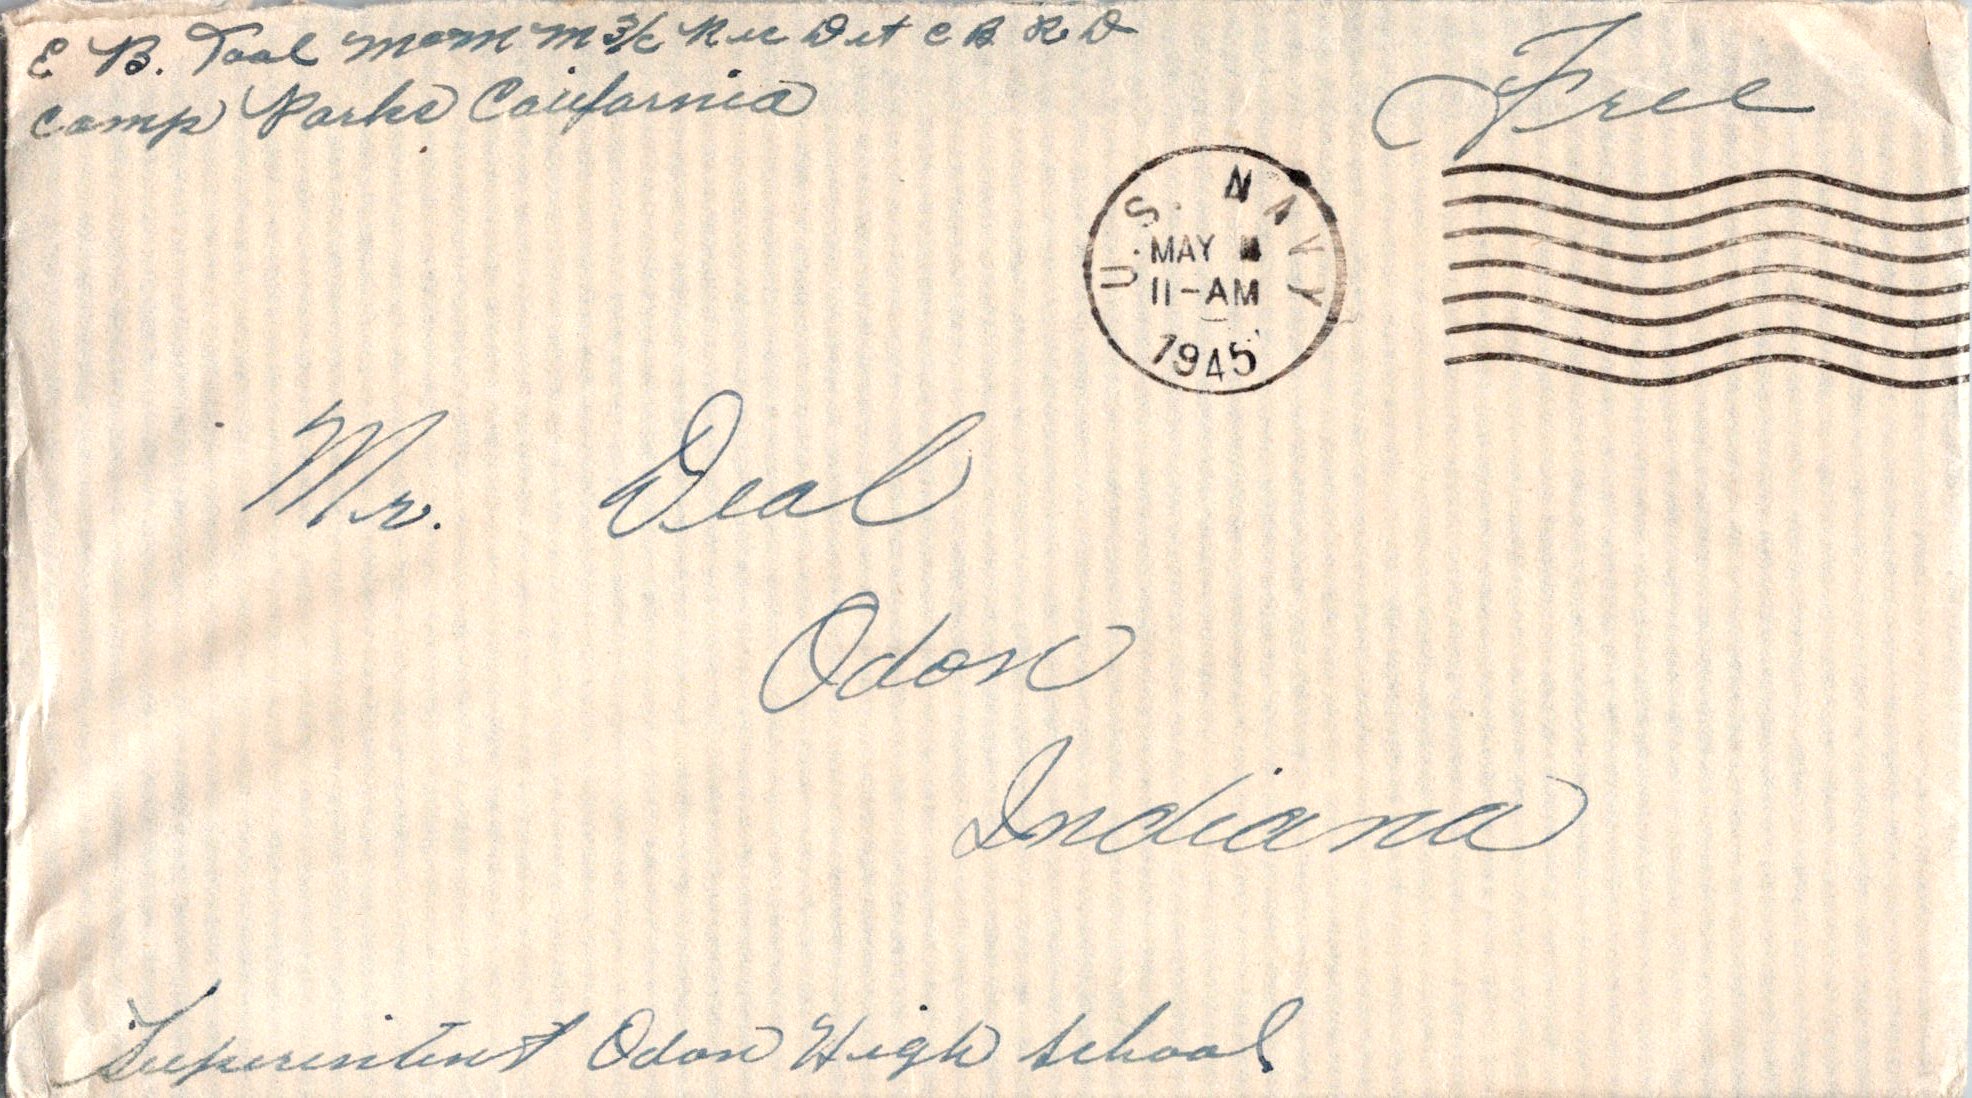 E B. Toal MoMM 3/c Rec Det C B R D
Camp Parks California
Free
U.S. NAVY
MAY
11-AM
1945
Mr. Deal
Odon
Indiana
Superintent Odon High School